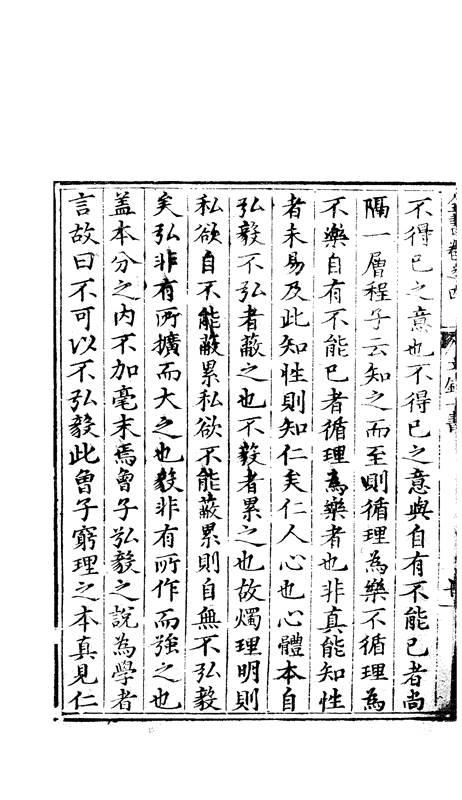 不得已之意也不得已之意與自有不能已者尚
隔一層程子云知之而至則循理為樂不循理為
不樂自有不能已者循理為樂者也非真能知性
者未易及此知性則知仁矣仁人心也心體本自
弘毅不弘者蔽之也不毅者累之也故燭理明則
私欲自不能蔽累私欲不能蔽累則自無不弘毅
矣弘非有所擴而大之也毅非有所作而強之也
盖本分之內不加毫末焉曾子弘毅之說為學者
言故曰不可以不弘毅此曾子窮理之本真見仁